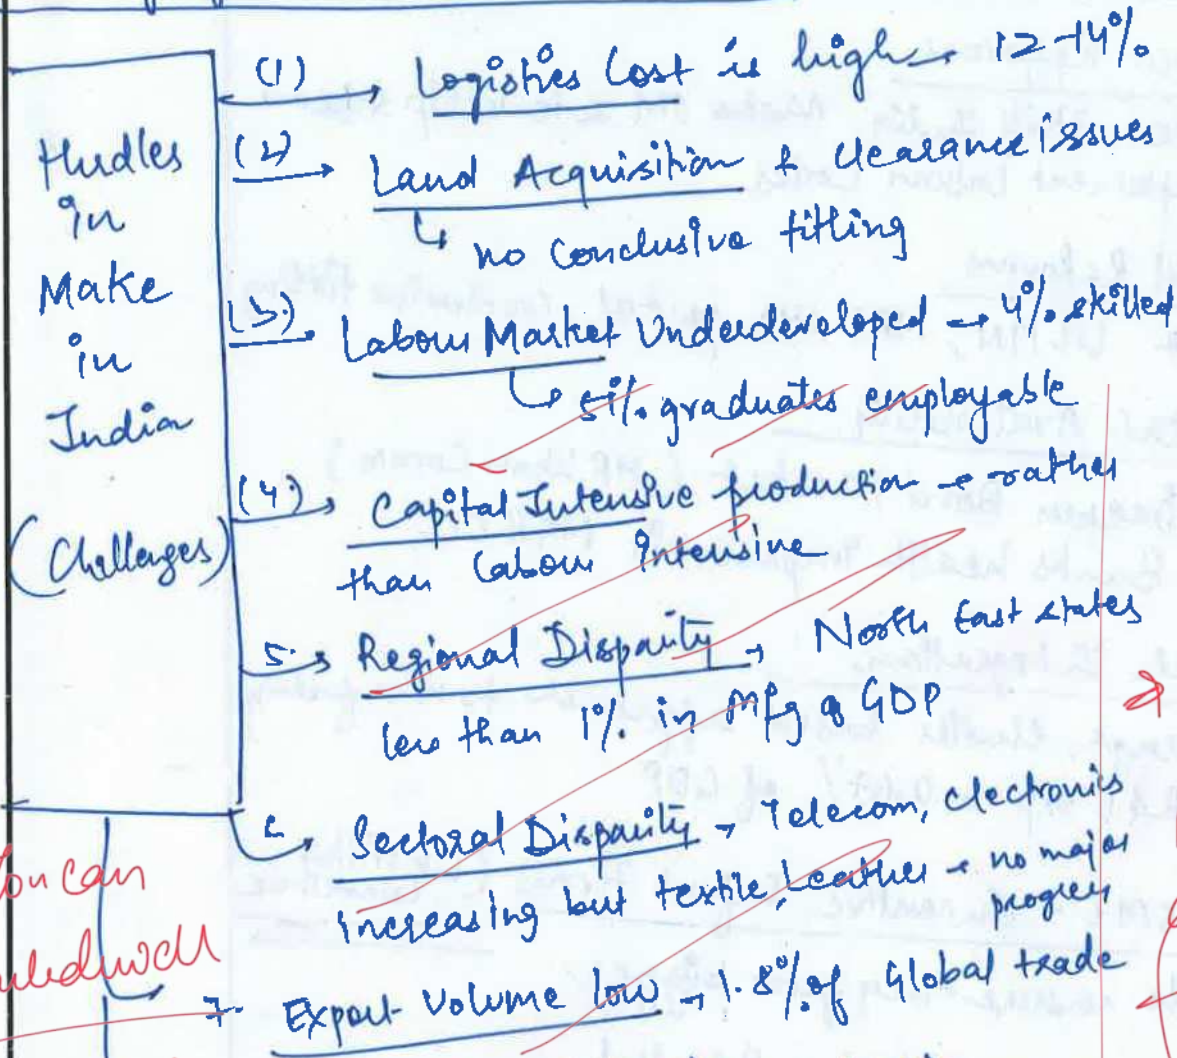 Hudles
in
Make
in
India
(Challenges)
(1) → Logistics Cost is high → 12-14%
(2) → Land Acquisition & clearance issues
↳ no conclusive titling
(3.) → Labour Market Underdeveloped → 4% skilled
↳ 51% graduates employable
(4.) → Capital Intensive production → rather
than labour intensive
5. → Regional Disparity → North East states
less than 1% in Mfg of GDP
Sectoral Disparity → Telecom, electronics
increasing but textile, Leather → no major
progress
7. Export Volume low → 1.8% of Global trade
You can